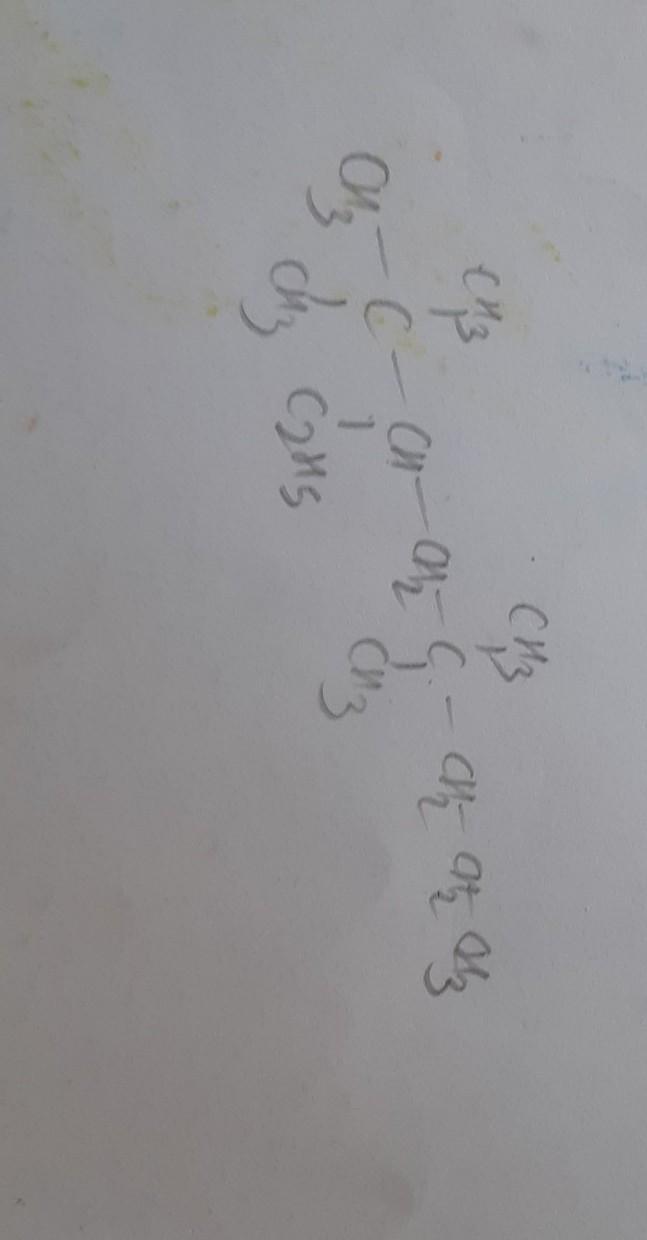 CH3 CH3
CH3 — C — CH — CH2 — C — CH2 — CH2 — CH3
CH3 C2H5 CH3